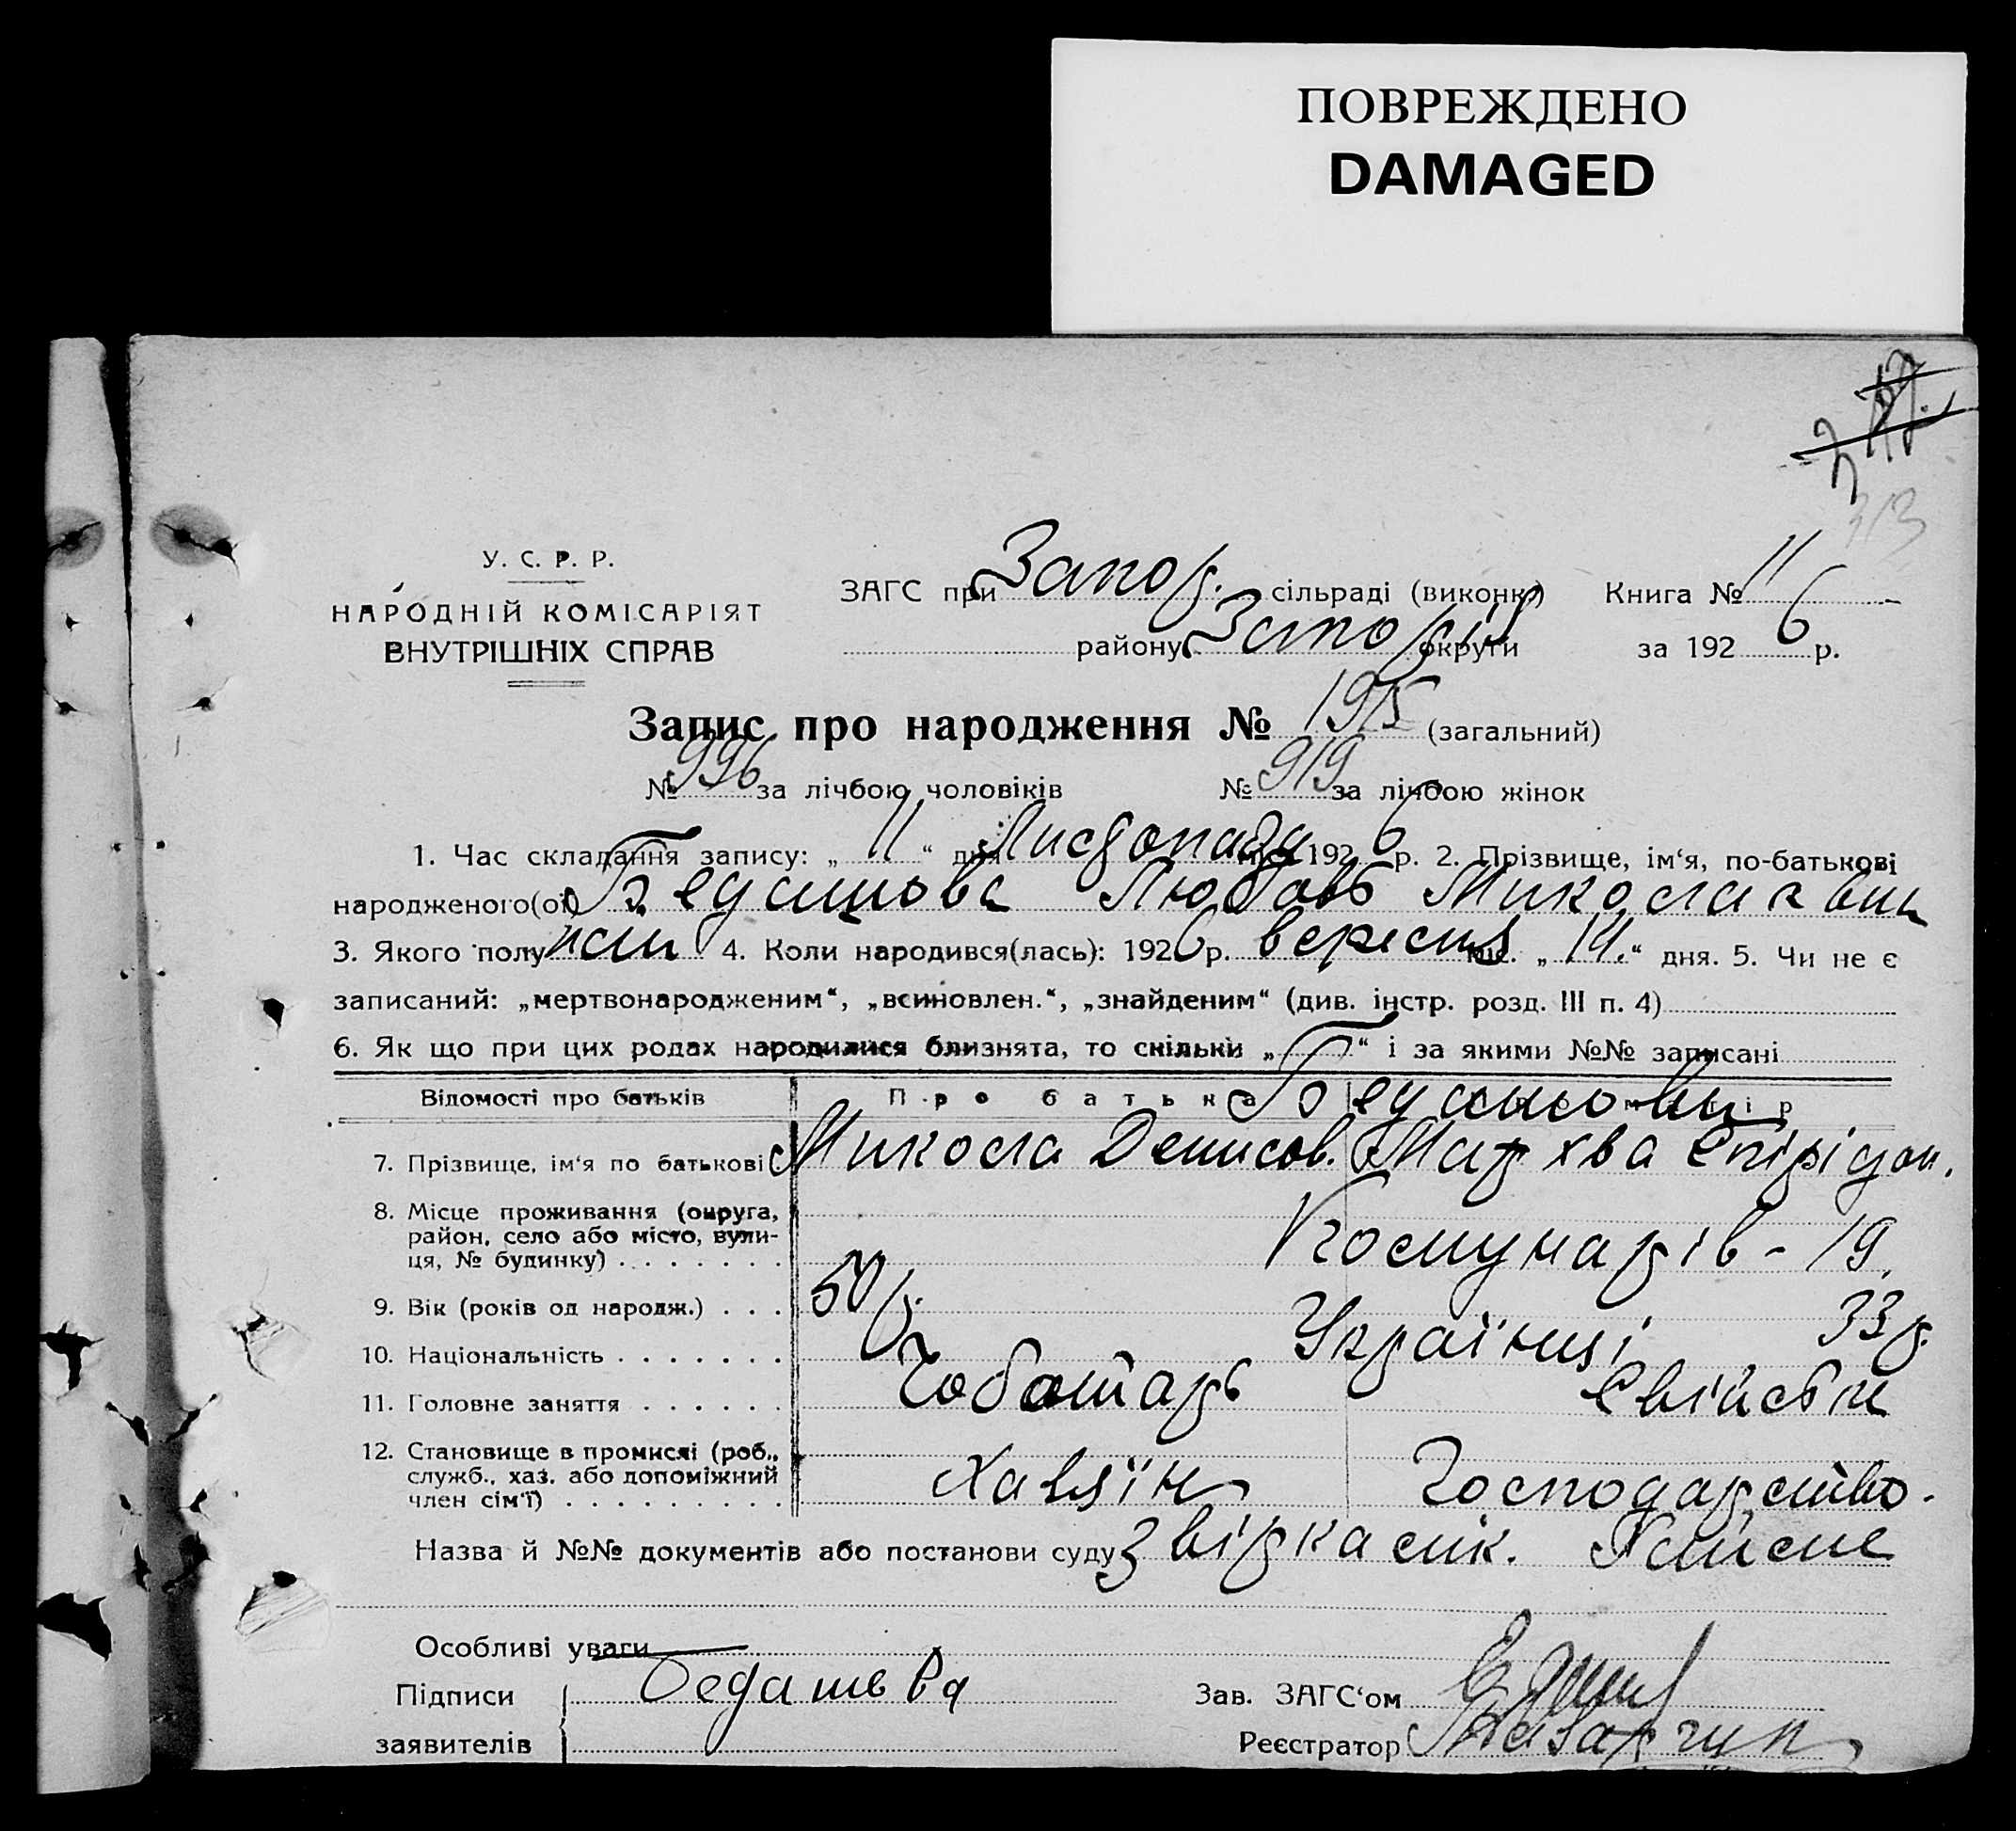 ПОВРЕЖДЕНО
DAMAGED
313
У. С. Р. Р.
НАРОДНІЙ КОМІСАРІЯТ
ВНУТРІШНІХ СПРАВ
ЗАГС при Запор. сільраді (виконк.) Книга № 11
району Запоріз округи за 1926 р.
Запис про народження № 1915 (загальний)
№ 996 за лічбою чоловіків № 919 за лічбою жінок
1. Час складання запису: „11“ дня Листопада 1926 р. 2. Прізвище, ім‘я, по-батькові
народженого(ої) Бедашова Любовь Миколаевна
3. Якого полу жін 4. Коли народився(лась): 1926 р. вересня міс. „14.“ дня. 5. Чи не є
записаний: „мертвонародженим“, „всиновлен.“, „знайденим“ (див. інстр. розд. III п. 4)
6. Як що при цих родах народилися близнята, то скільки „ “ і за якими №№ записані
Відомості про батьків Про батька Про матір
Бедашови
7. Прізвище, ім‘я по батькові Микола Денисов. Мархва Спірідон.
8. Місце проживання (округа,
район, село або місто, вули-
ця, № будинку) Комунарів - 19.
9. Вік (років од народж.) 50 р. 33 р.
10. Національність Українці
11. Головне заняття Чоботарь Свійсьпе
12. Становище в промислі (роб.,
служб., хаз. або допоміжний
член сім‘ї) Хазяїн Господарство.
Назва й №№ документів або постанови суду Звірка
Особливі уваги
Підписи Бедашева Зав. ЗАГС‘ом
заявителів Реєстратор